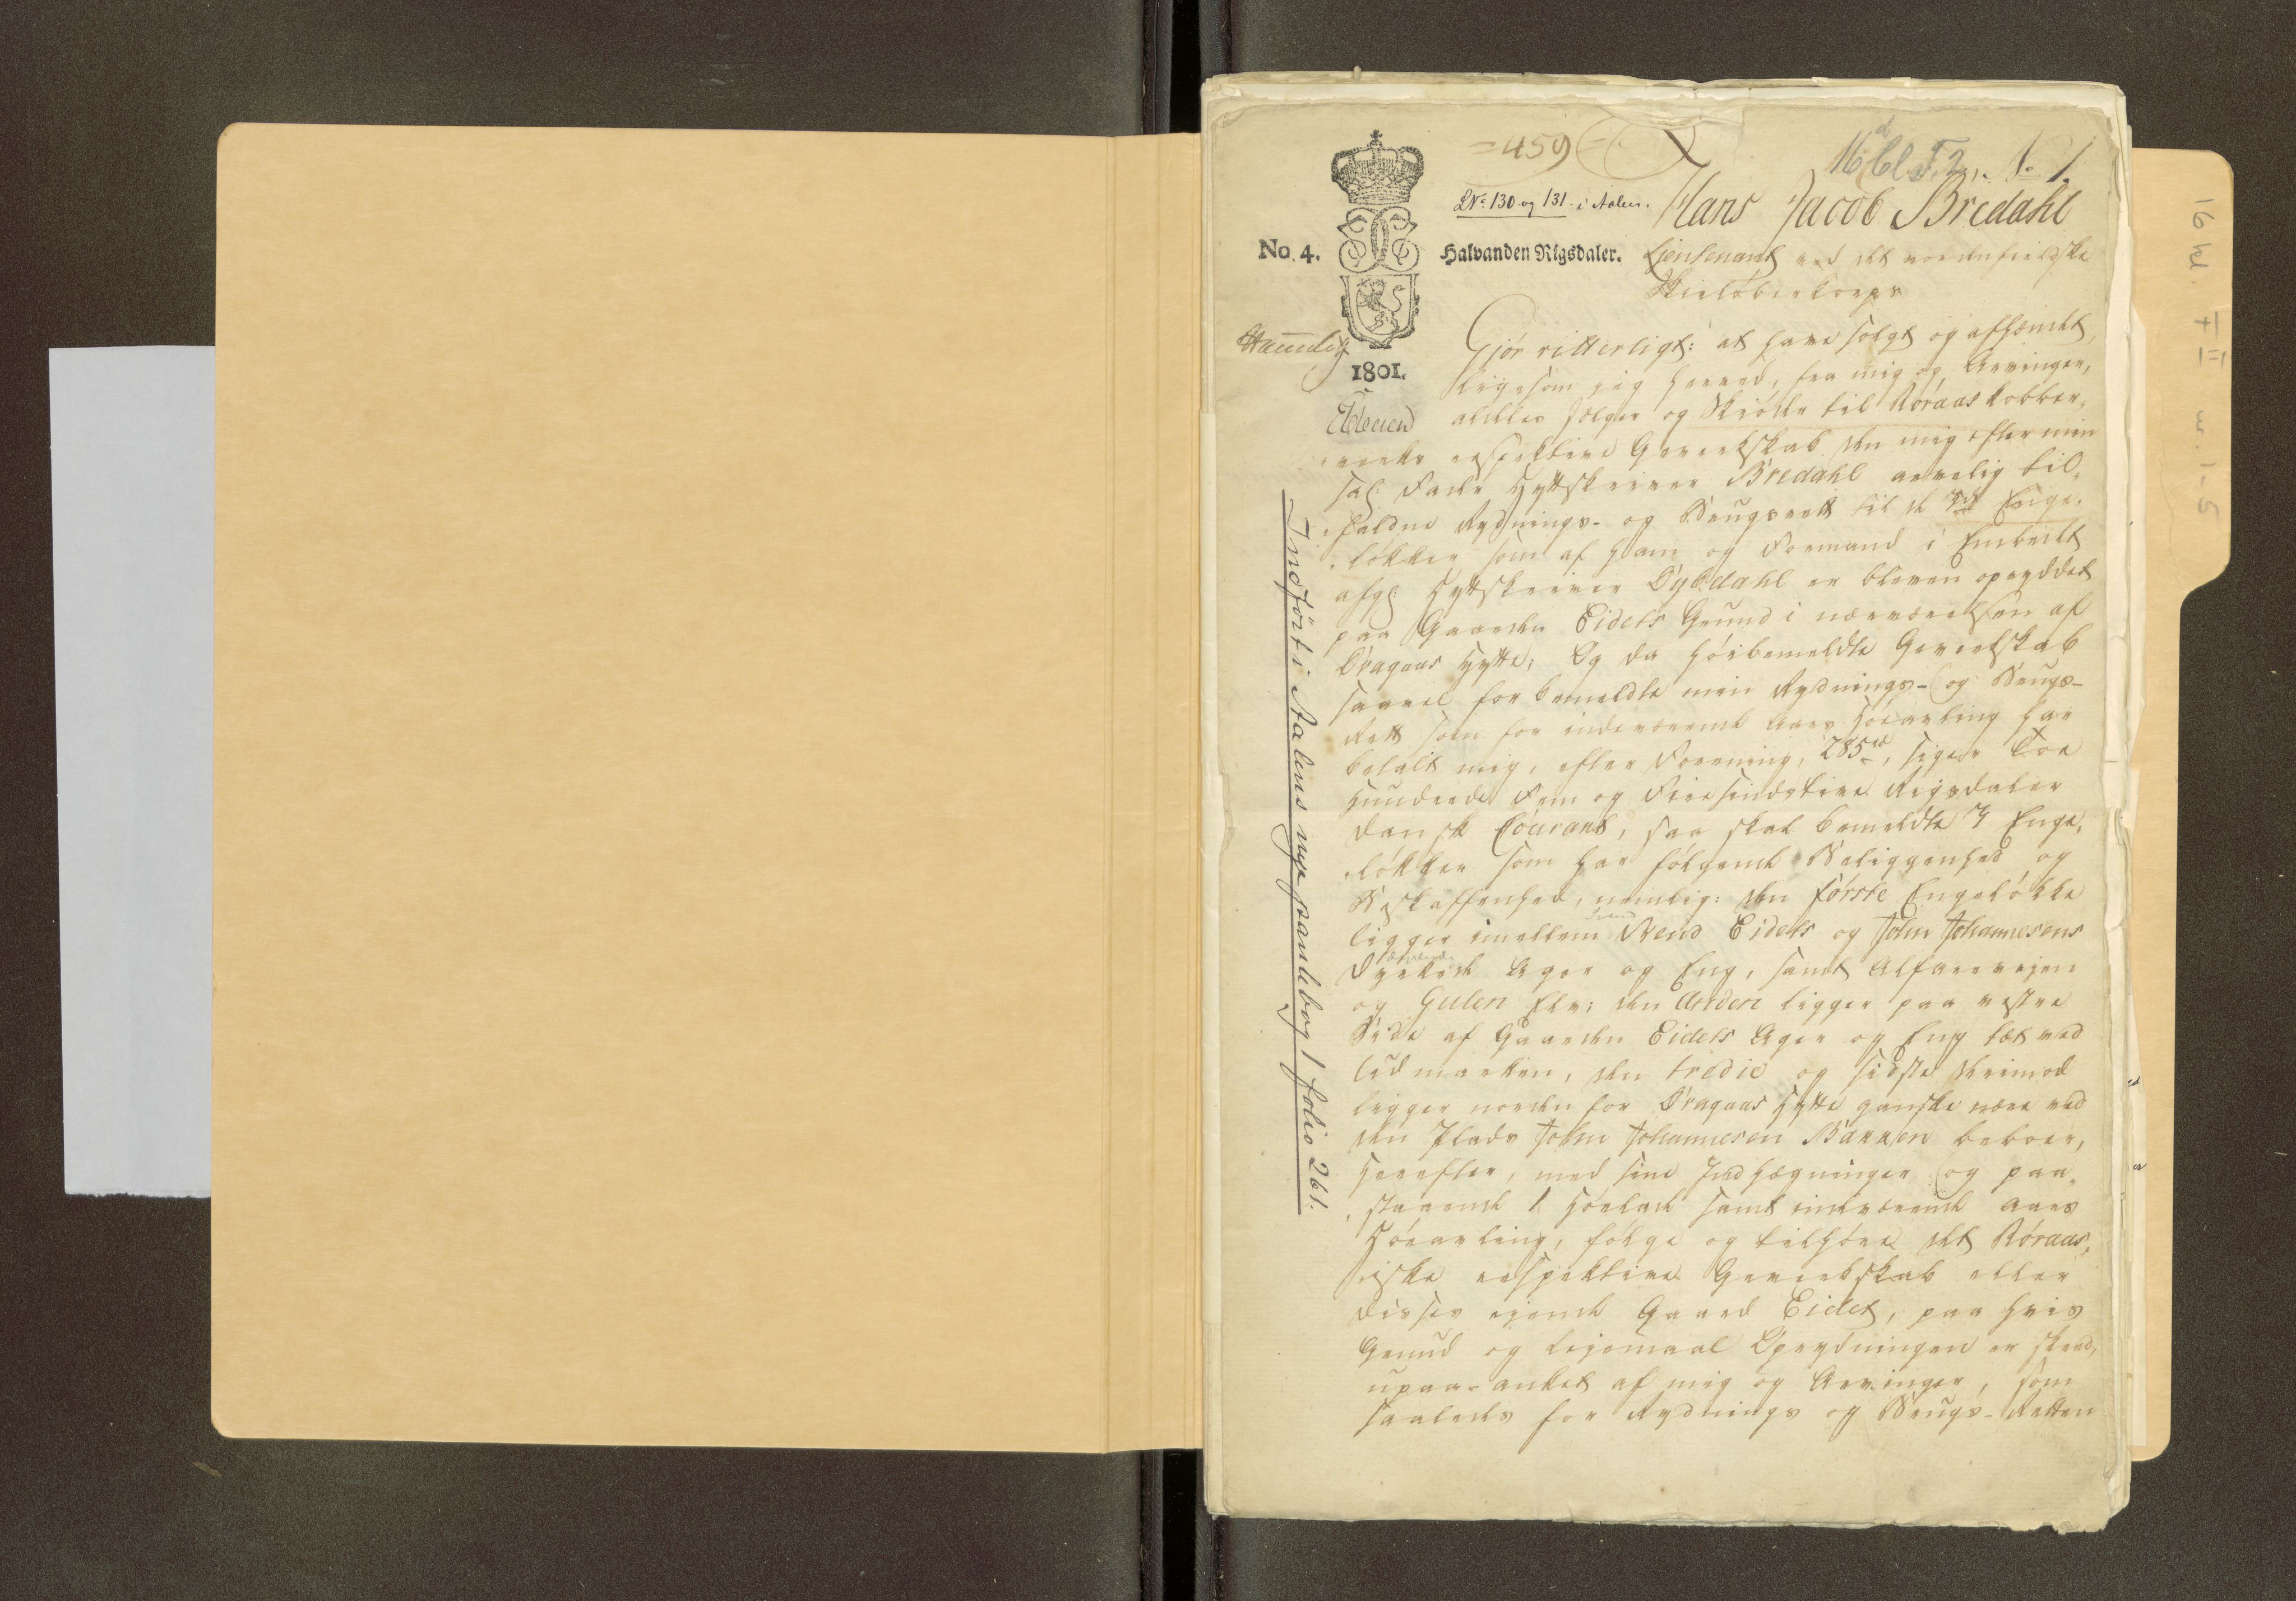 =459=
16de Cl. F. 2, No 1.
LNo 130 og 131 i Aalen.
Hans Jacob Bredahl
No. 4.
Halvanden Rigsdaler.
Lieutenant ved det nordenfieldske
Skieløberkorps
1801.
Gjør vitterligt: at have solgt og afhændet,
ligesom jeg herved, fra mig og Arvinger,
aldeles sælger og skiøder til Røraas Kobber-
verks respektive Geverkskab den mig efter min
sal: Fader Hytteskriver Bredahl arvelig til-
faldne Rydnings- og Brugsrett til de Enge-
løkker som af ham og Formand i Embedet
afg: Hytteskriver Dybdahl er bleven opryddet
paa Gaarden Eidets Grund i nærværelsen af
Dragaas Hytte; Og da høibemeldte Gevrekskab
saavel for bemeldte min Rydnings- og Brugs-
Rett som for indeværende Aars Høeavling har
betalt mig, efter Forening, 285 rd, siger Toe
Hundrede Fem og Firesindstive Rigsdaler
Dansk Courant, saa skal bemeldte Enge-
løkker som har følgende Beliggenhed og
Beskaffenhed, nemlig: den første Engeløkke
ligger imellem Svend Eidets og John Johannesens
dyrkede Ager og Eng, samt Alfarvejen
og Gulen Elv; den Anden ligger paa vestre
Side af Gaarden Eidets Ager og Eng tæt ved
Udmarken, den tredie og sidste derimod
ligger norden for Dragaas Hytte ganske nære ved
den Plads John Johannesen Bakken beboer,
herefter, med sine Indhægninger og paa-
staaende 1 Høelade samt indeværende Aars
Høeavling, følge og tilhøre det Røraas-
iske respektive Gevrekskab eller
disses ejende Gaard Eidet, paa hvis
Grund og Lejemaal Oprydningen er skeed,
upaa-anket af mig og Arvinger, som
saaledes for Rydnings og Brugs-Retten
Indført i Aalens nye pantebog 1 folio 261.
16 kl. F II nr. 1-5